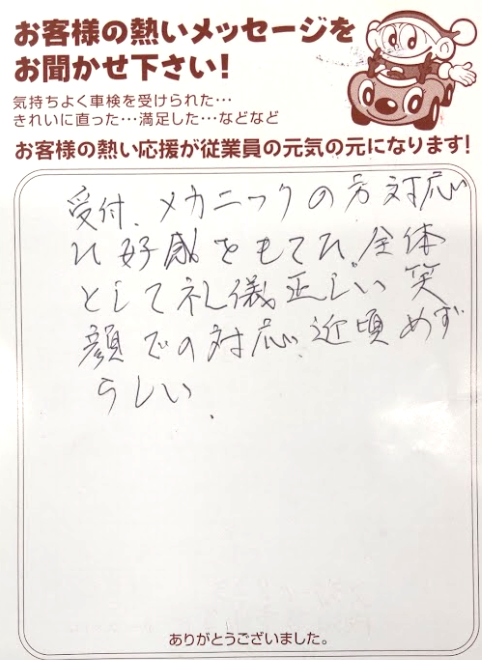 お客様の熱いメッセージを
お聞かせ下さい!
気持ちよく車検を受けられた…
きれいに直った…満足した…などなど
お客様の熱い応援が従業員の元気の元になります!
受付、メカニックの方対応
に好感をもてた、全体
として礼儀正しい笑
顔での対応、近頃めず
らしい.
ありがとうございました。